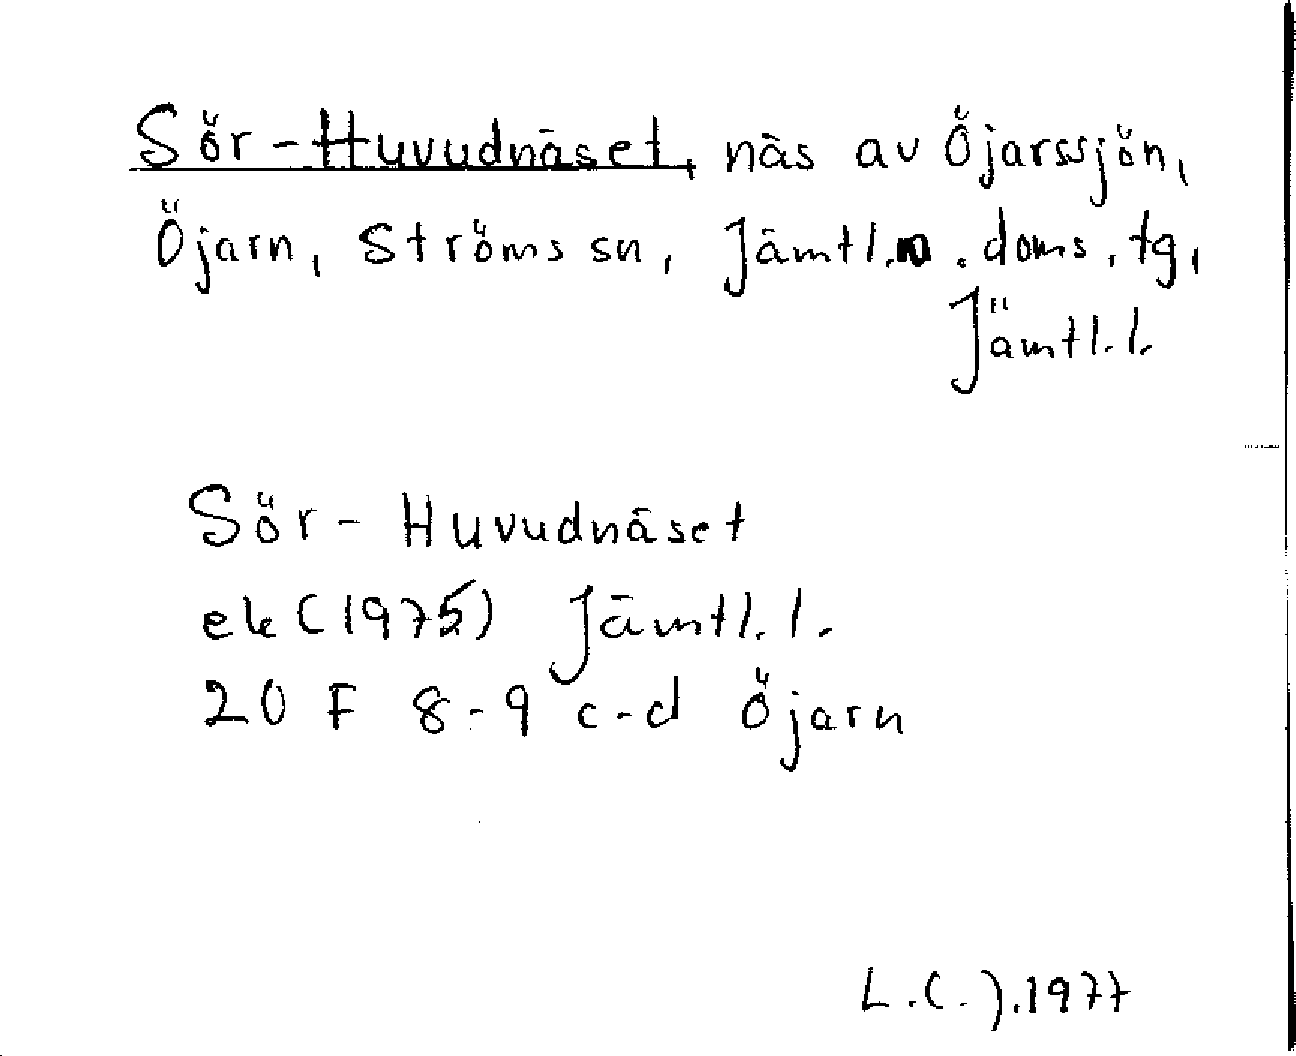 Sör-Huvudnäset, näs av Öjarssjön,
Öjarn, Ströms sn, Jämtl.n. doms. tg,
Jämtl.l.
Sör-Huvudnäset
ek (1975) Jämtl.l.
20 F 8-9 c-d Öjarn
L.(.).1977